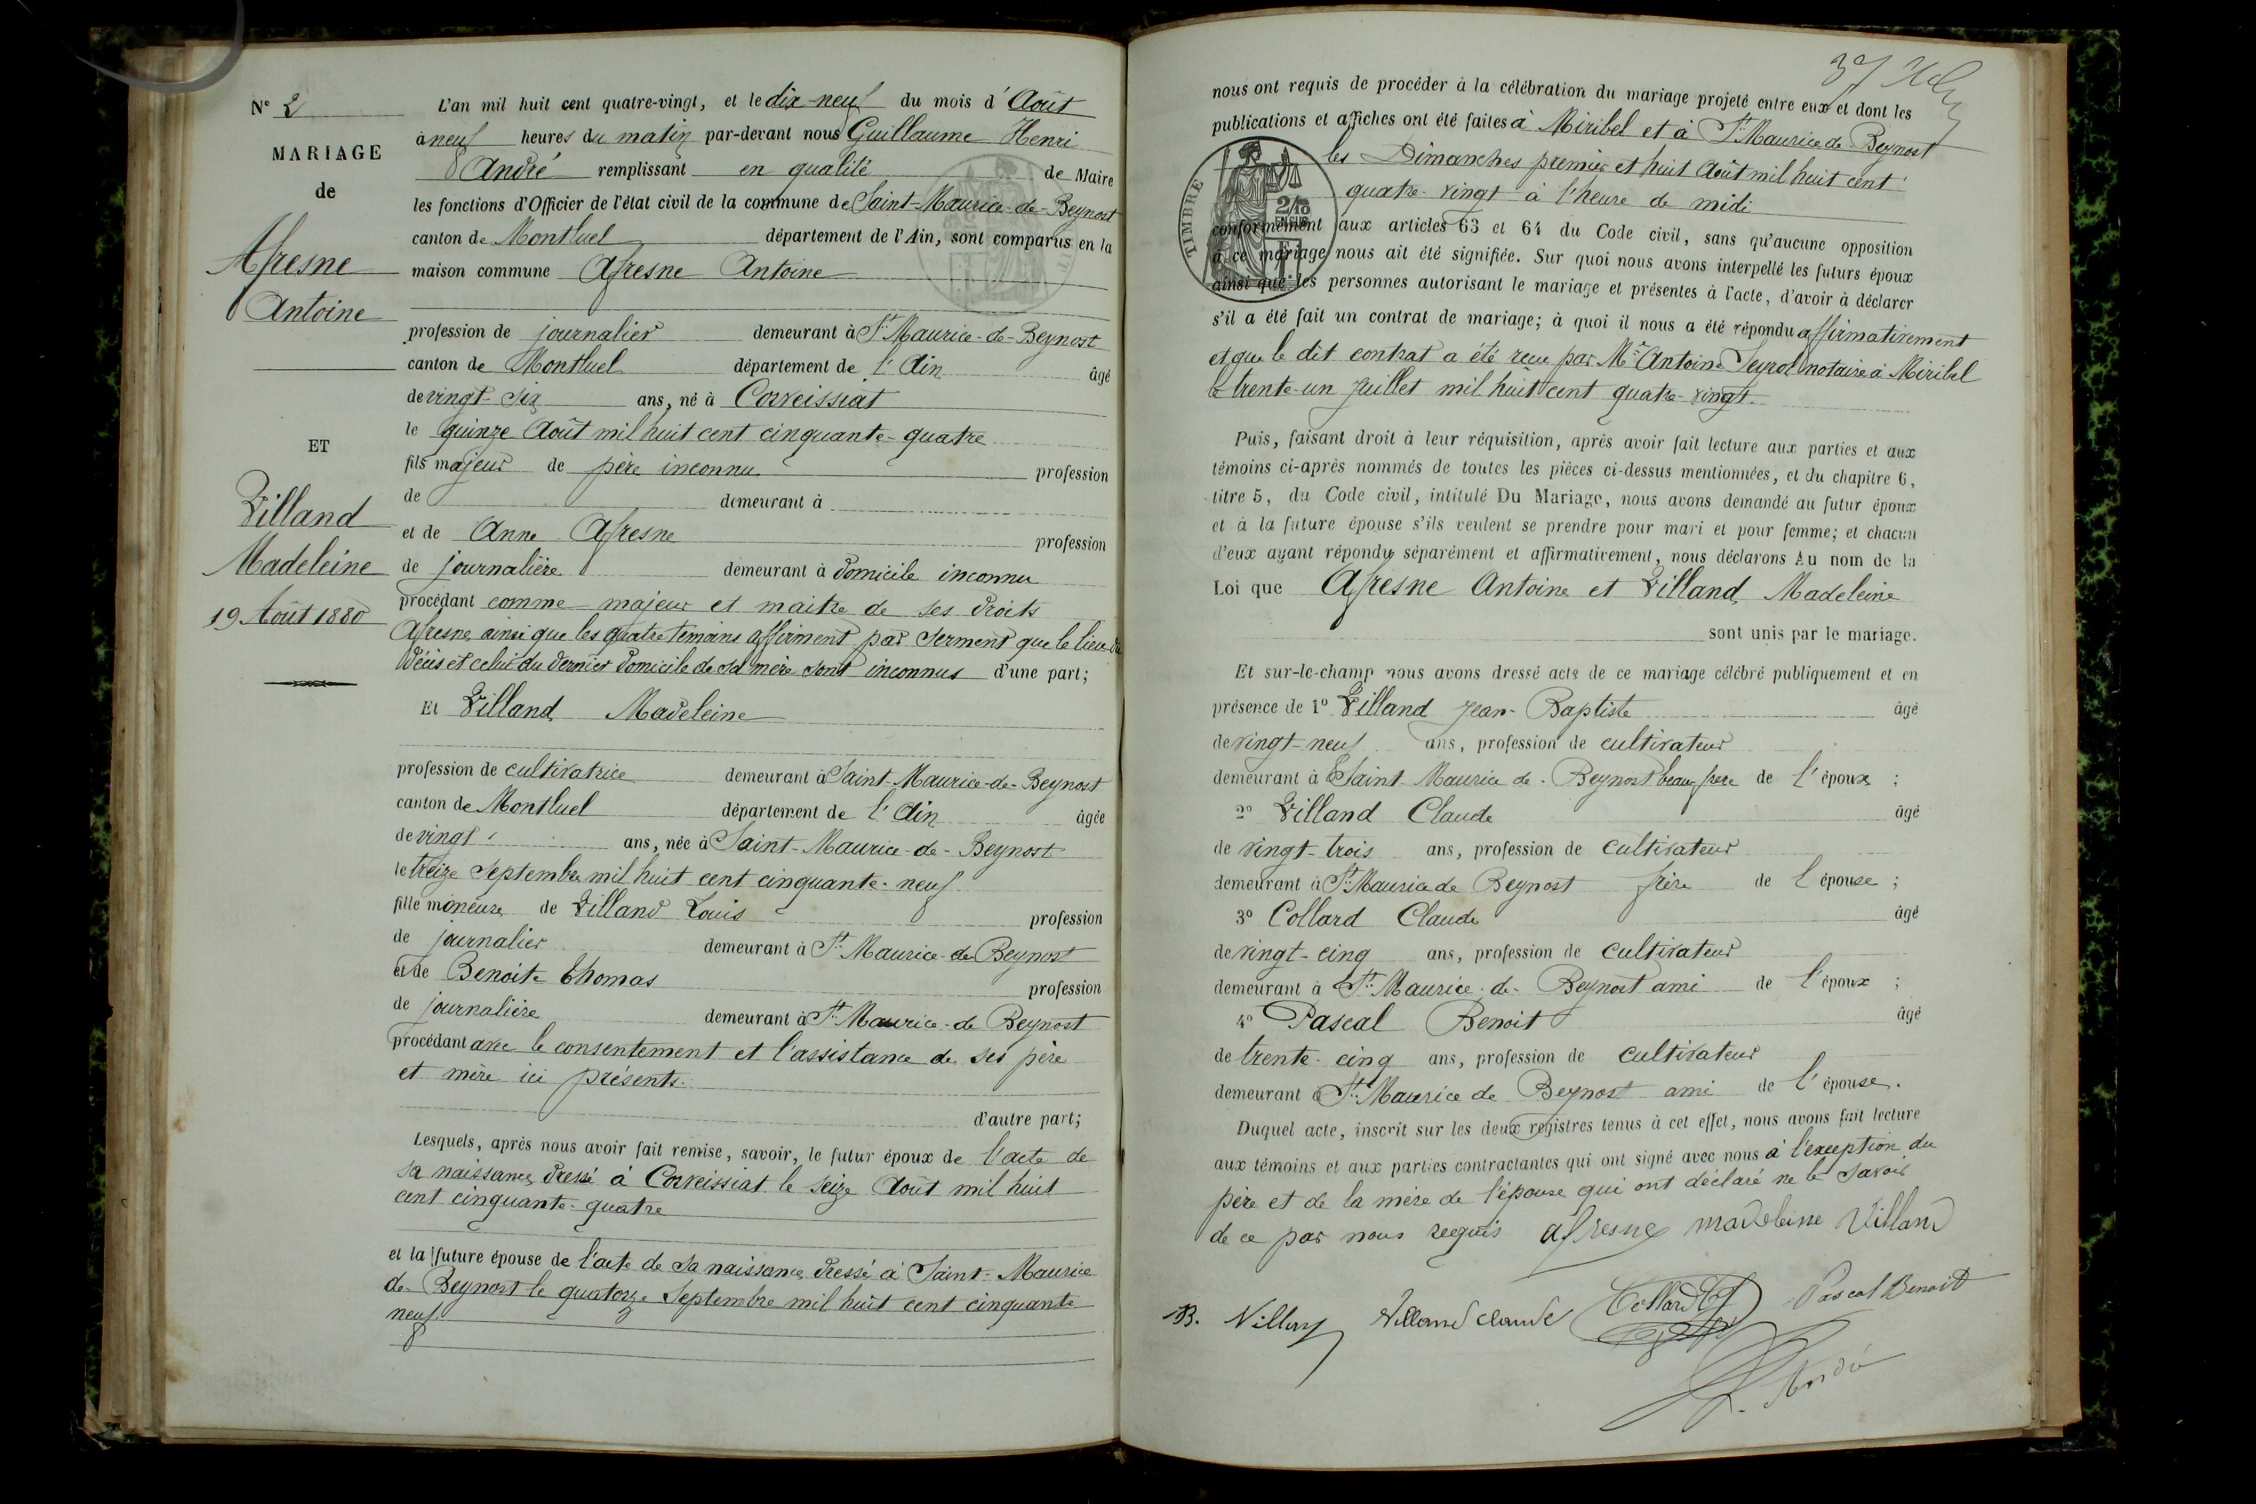 N° 2
MARIAGE
de
Afresne
Antoine
ET
Villand
Madeleine
19 Août 1880
L'an mil huit cent quatre-vingt, et le dix-neuf du mois d'Août
à neuf heures du matin par-devant nous Guillaume Henri
André remplissant en qualité de Maire
les fonctions d'Officier de l'état civil de la commune de Saint-Maurice-de-Beynost
canton de Montluel département de l'Ain, sont comparus en la
maison commune Afresne Antoine
profession de journalier demeurant à St Maurice-de-Beynost
canton de Montluel département de l'Ain âgé
de vingt-six ans, né à Corveissiat
le quinze Août mil huit cent cinquante-quatre
fils majeur de père inconnu profession
de demeurant à
et de Anne Afresne profession
de journalière demeurant à domicile inconnu
procédant comme majeur et maître de ses droits
Afresne ainsi que les quatre témoins affirment par serment que le lieu du
décès et celui du dernier domicile de sa mère sont inconnus d'une part;
Et Villand Madeleine
profession de cultivatrice demeurant à Saint-Maurice-de-Beynost
canton de Montluel département de l'Ain âgée
de vingt ans, née à Saint-Maurice-de-Beynost
le treize Septembre mil huit cent cinquante-neuf
fille mineure de Villand Louis profession
de journalier demeurant à St Maurice-de Beynost
et de Benoite Thomas profession
de journalière demeurant à St Maurice-de Beynost
procédant avec le consentement et l'assistance de ses père
et mère ici présents.
d'autre part;
Lesquels, après nous avoir fait remise, savoir, le futur époux de l'acte de
sa naissance dressé à Corveissiat le seize Août mil huit
cent cinquante-quatre
et la future épouse de l'acte de sa naissance dressé à Saint-Maurice
de-Beynost le quatorze Septembre mil huit cent cinquante
neuf
37
nous ont requis de procéder à la célébration du mariage projeté entre eux et dont les
publications et affiches ont été faites à Miribel et à St Maurice de Beynost
les Dimanches premier et huit Août mil huit cent
quatre-vingt à l'heure de midi
TIMBRE
2/10
EN SUS
conformément aux articles 63 et 64 du Code civil, sans qu'aucune opposition
à ce mariage nous ait été signifiée. Sur quoi nous avons interpellé les futurs époux
ainsi que les personnes autorisant le mariage et présentes à l'acte, d'avoir à déclarer
s'il a été fait un contrat de mariage; à quoi il nous a été répondu affirmativement
et que le dit contrat a été reçu par Me Antoine notaire à Miribel
le trente-un juillet mil huit cent quatre-vingt.
Puis, faisant droit à leur réquisition, après avoir fait lecture aux parties et aux
témoins ci-après nommés de toutes les pièces ci-dessus mentionnées, et du chapitre 6,
titre 5, du Code civil, intitulé Du Mariage, nous avons demandé au futur époux
et à la future épouse s'ils veulent se prendre pour mari et pour femme; et chacun
d'eux ayant répondu séparément et affirmativement, nous déclarons Au nom de la
Loi que Afresne Antoine et Villand Madeleine
sont unis par le mariage.
Et sur-le-champ nous avons dressé acte de ce mariage célébré publiquement et en
présence de 1° Villand Jean-Baptiste âgé
de vingt-neuf ans, profession de cultivateur
demeurant à Saint Maurice de-Beynost beau-frère de l'époux;
2° Villand Claude âgé
de vingt-trois ans, profession de cultivateur
demeurant à St Maurice de Beynost frère de l'épouse;
3° Collard Claude âgé
de vingt-cinq ans, profession de cultivateur
demeurant à St Maurice-de-Beynost ami de l'époux;
4° Pascal Benoit âgé
de trente-cinq ans, profession de cultivateur
demeurant à St Maurice de Beynost ami de l'épouse.
Duquel acte, inscrit sur les deux registres tenus à cet effet, nous avons fait lecture
aux témoins et aux parties contractantes qui ont signé avec nous à l'exception du
père et de la mère de l'épouse qui ont déclaré ne le savoir
de ce par nous requis afresne madeleine Villand
JB. Villand Villand claude Collard Cl Pascal Benoit
André